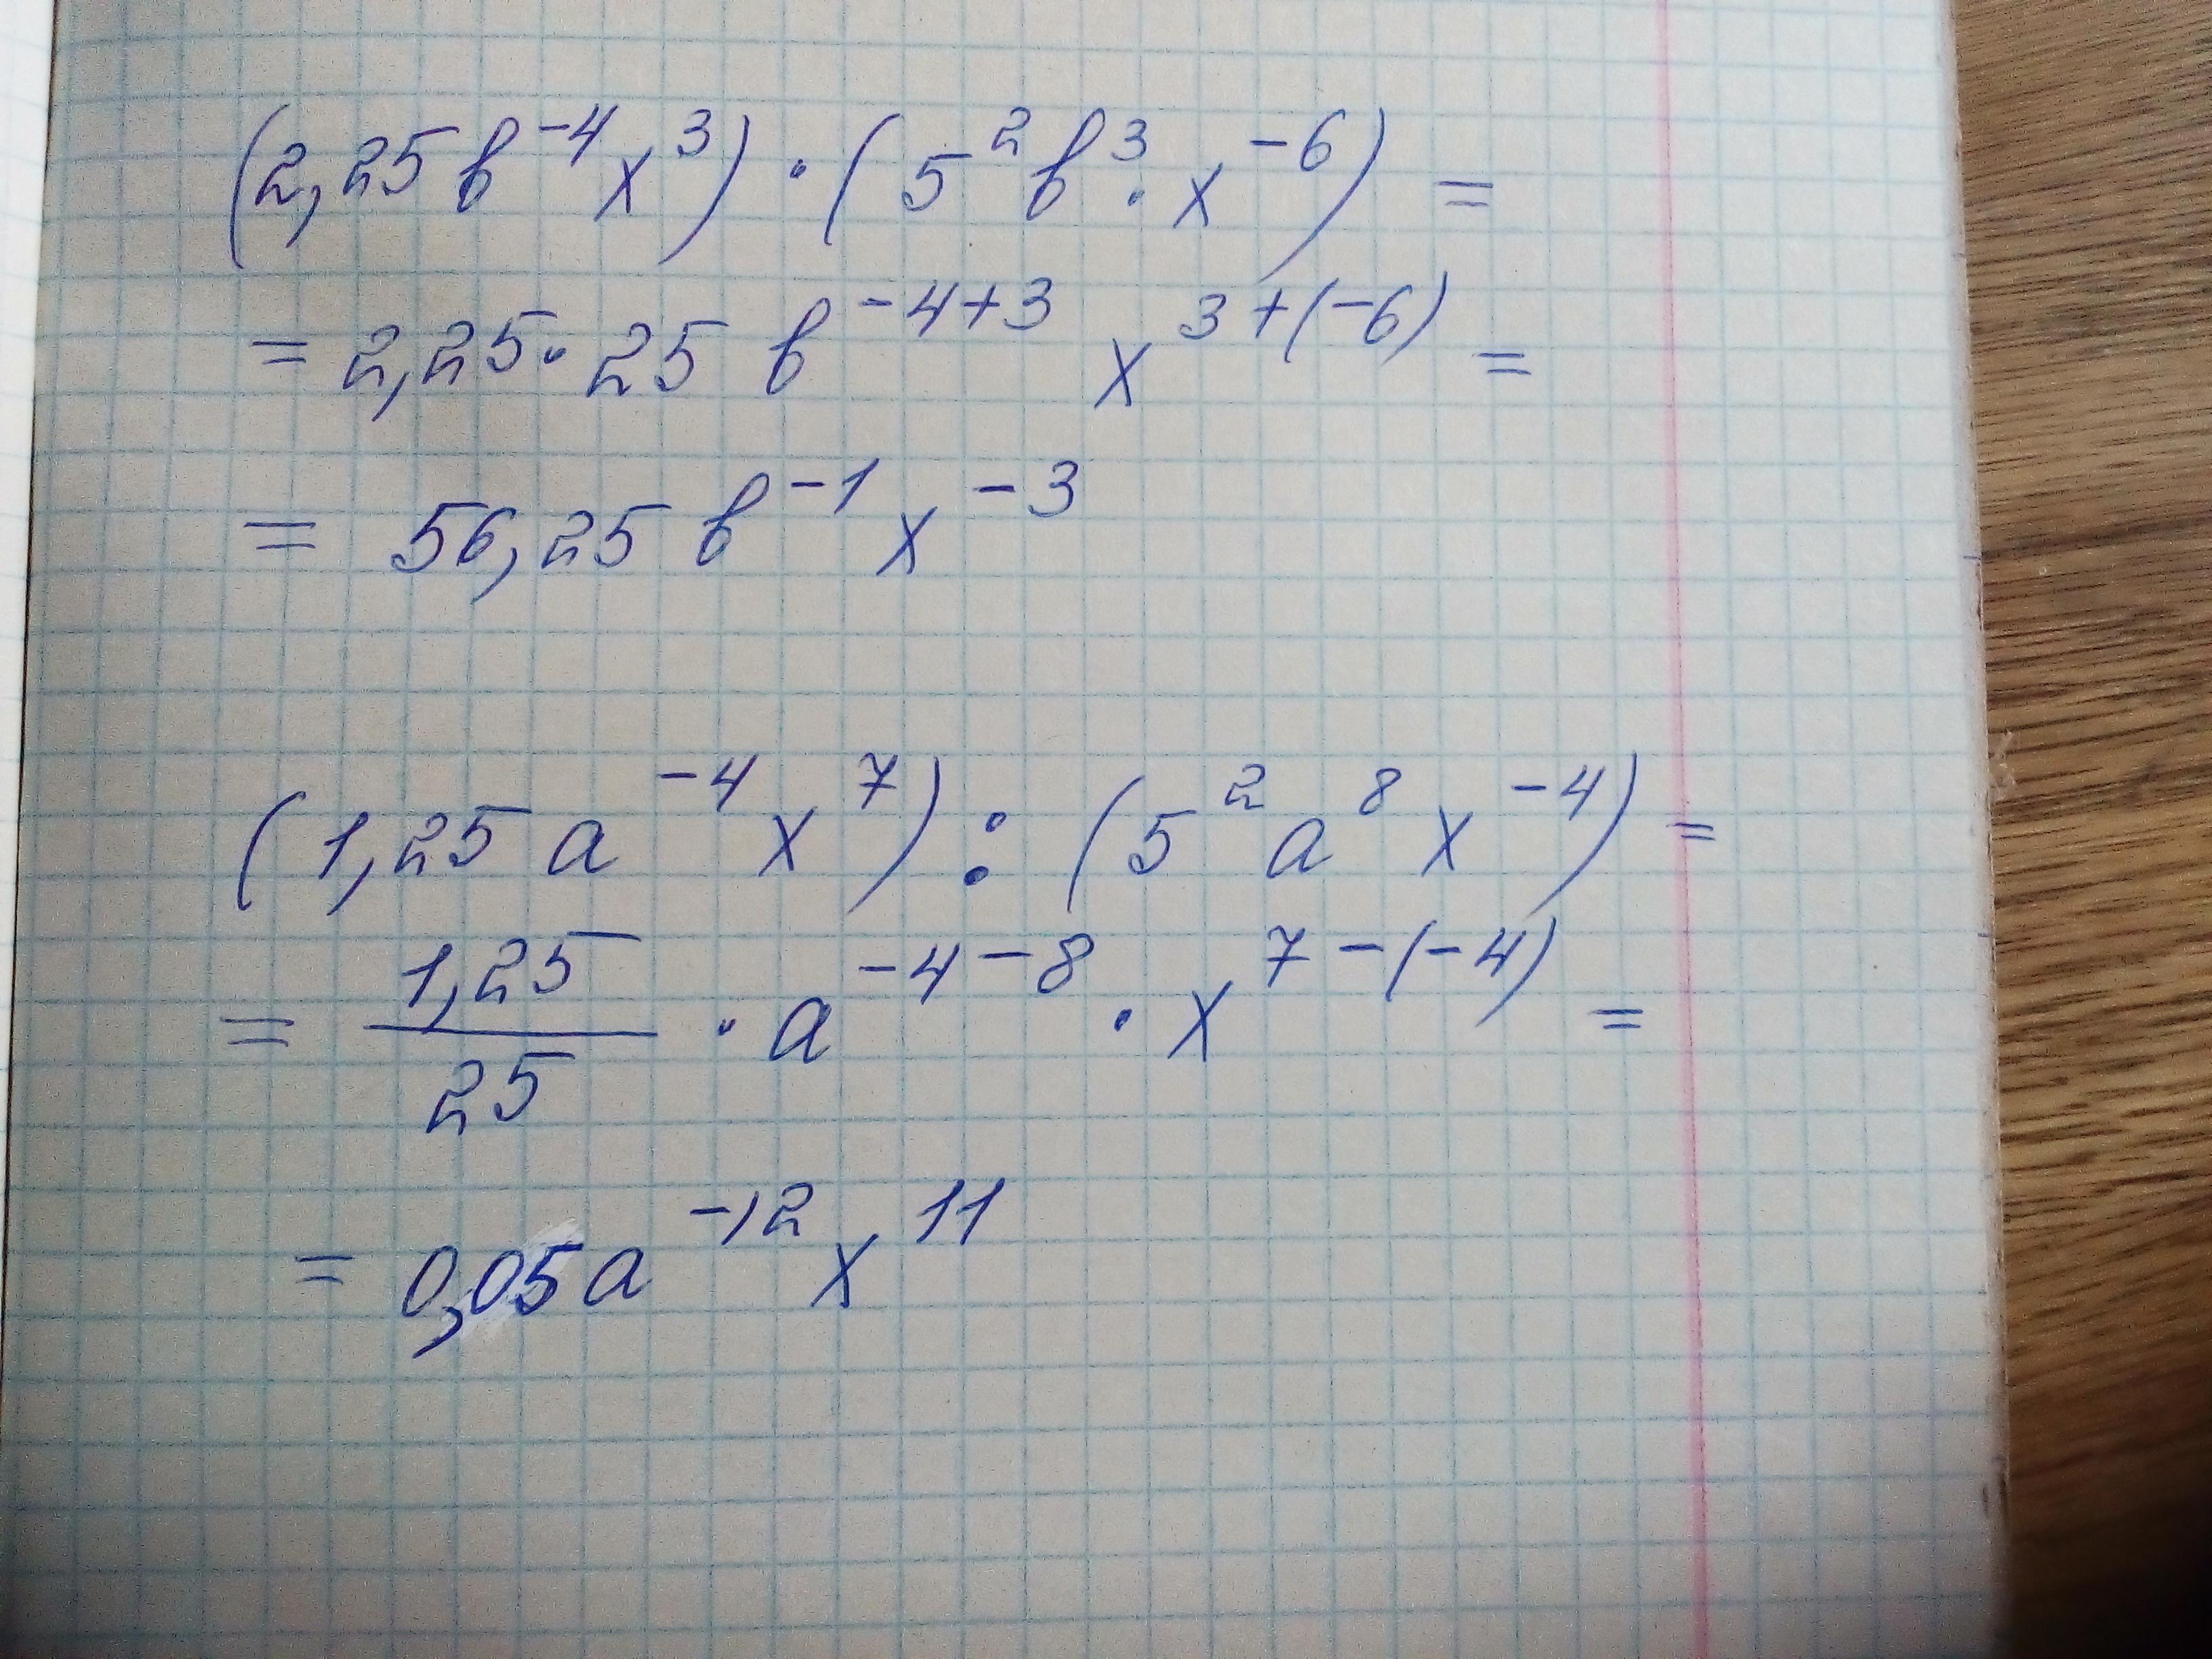 (2,25 b⁻⁴ x³) · (5² b³ · x⁻⁶) =
= 2,25 · 25 b⁻⁴⁺³ x³⁺⁽⁻⁶⁾ =
= 56,25 b⁻¹ x⁻³
(1,25 a⁻⁴ x⁷) : (5² a⁸ x⁻⁴) =
= 1,25/25 · a⁻⁴⁻⁸ · x⁷⁻⁽⁻⁴⁾ =
= 0,05 a⁻¹² x¹¹